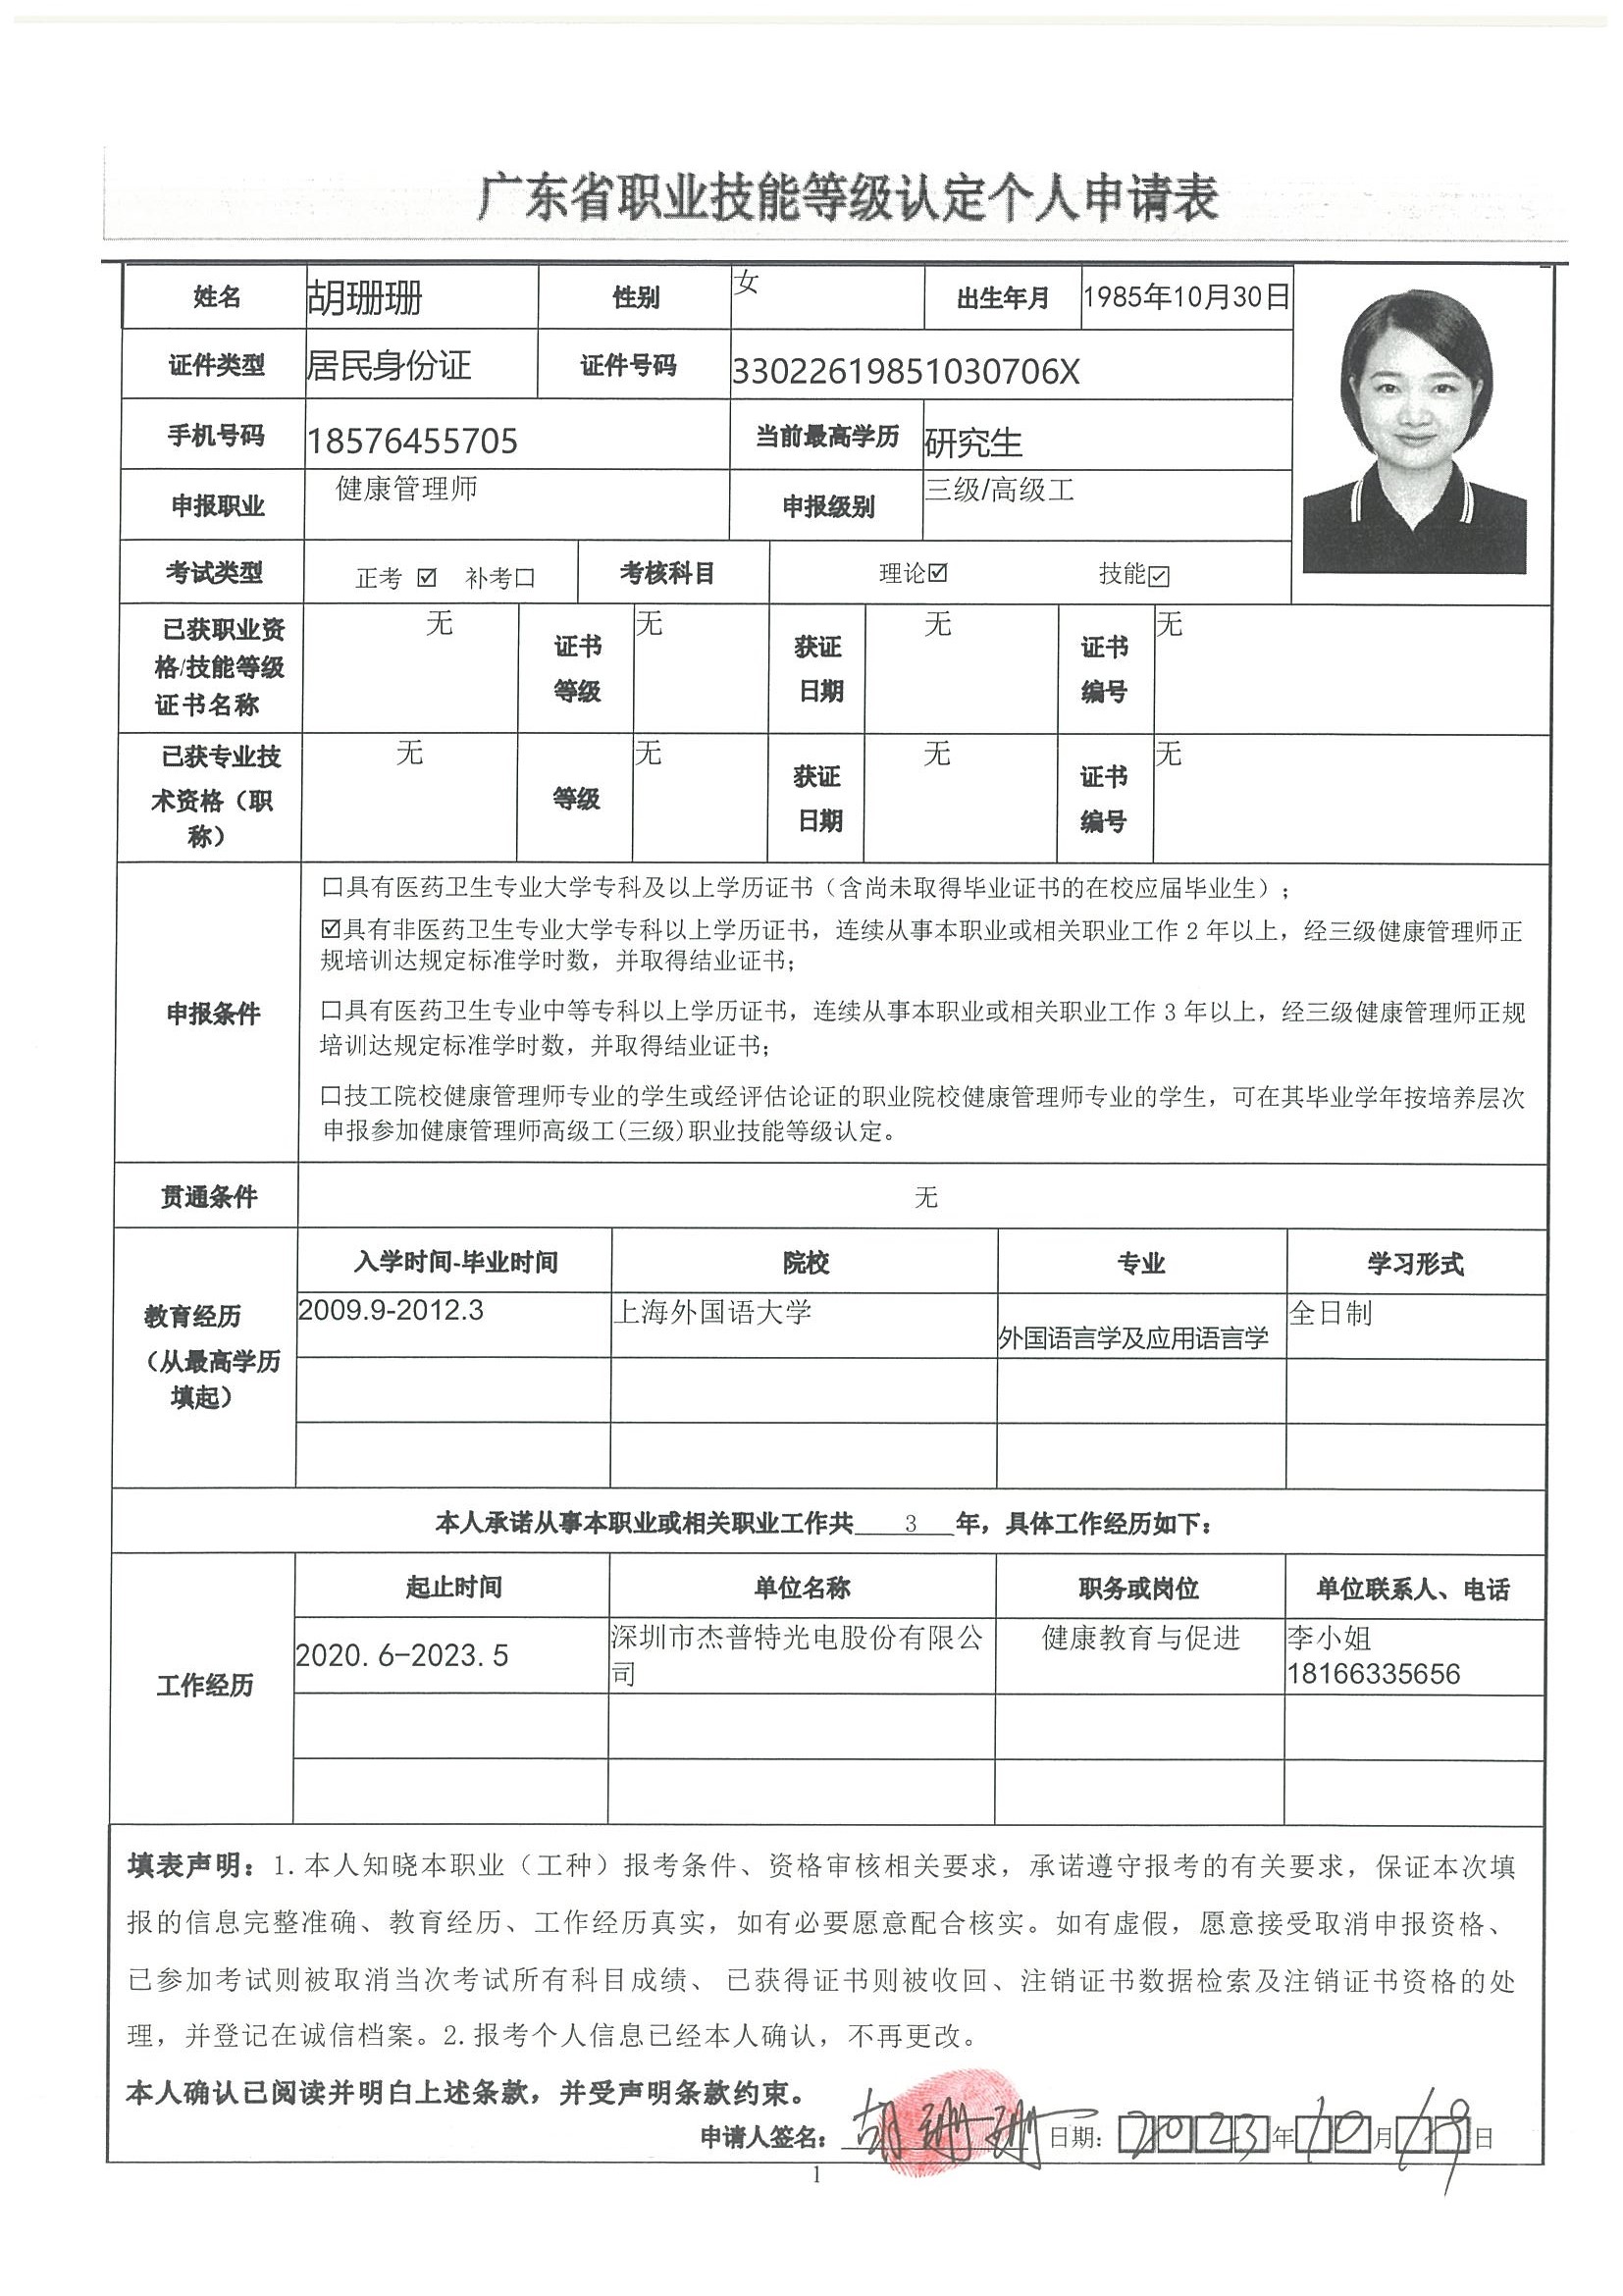 广东省职业技能等级认定个人申请表
姓名 胡珊珊 性别 女 出生年月 1985年10月30日
证件类型 居民身份证 证件号码 33022619851030706X
手机号码 18576455705 当前最高学历 研究生
申报职业 健康管理师 申报级别 三级/高级工
考试类型 正考 ☑ 补考☐ 考核科目 理论☑ 技能☑
已获职业资格/技能等级证书名称 无 证书等级 无 获证日期 无 证书编号 无
已获专业技术资格（职称） 无 等级 无 获证日期 无 证书编号 无
申报条件
☐具有医药卫生专业大学专科及以上学历证书（含尚未取得毕业证书的在校应届毕业生）；
☑具有非医药卫生专业大学专科以上学历证书，连续从事本职业或相关职业工作 2 年以上，经三级健康管理师正
规培训达规定标准学时数，并取得结业证书；
☐具有医药卫生专业中等专科以上学历证书，连续从事本职业或相关职业工作 3 年以上，经三级健康管理师正规
培训达规定标准学时数，并取得结业证书；
☐技工院校健康管理师专业的学生或经评估论证的职业院校健康管理师专业的学生，可在其毕业学年按培养层次
申报参加健康管理师高级工(三级)职业技能等级认定。
贯通条件 无
教育经历
（从最高学历
填起）
入学时间-毕业时间 院校 专业 学习形式
2009.9-2012.3 上海外国语大学 外国语言学及应用语言学 全日制
本人承诺从事本职业或相关职业工作共 3 年，具体工作经历如下：
工作经历
起止时间 单位名称 职务或岗位 单位联系人、电话
2020.6-2023.5 深圳市杰普特光电股份有限公司 健康教育与促进 李小姐 18166335656
填表声明：1.本人知晓本职业（工种）报考条件、资格审核相关要求，承诺遵守报考的有关要求，保证本次填
报的信息完整准确、教育经历、工作经历真实，如有必要愿意配合核实。如有虚假，愿意接受取消申报资格、
已参加考试则被取消当次考试所有科目成绩、 已获得证书则被收回、注销证书数据检索及注销证书资格的处
理，并登记在诚信档案。2.报考个人信息已经本人确认，不再更改。
本人确认已阅读并明白上述条款，并受声明条款约束。
申请人签名：胡珊珊 日期：2023年10月19日
1